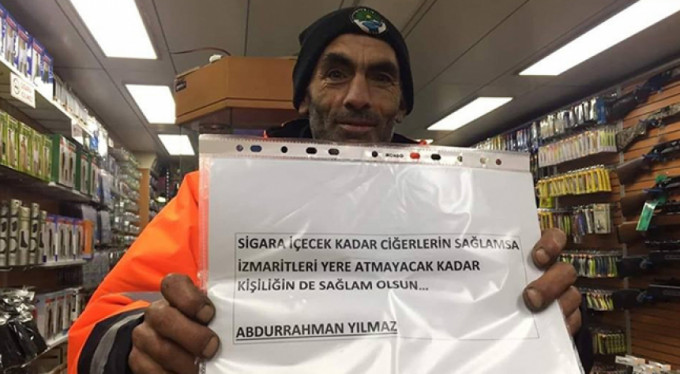 SİGARA İÇECEK KADAR CİĞERLERİN SAĞLAMSA
İZMARİTLERİ YERE ATMAYACAK KADAR
KİŞİLİĞİN DE SAĞLAM OLSUN...
ABDURRAHMAN YILMAZ